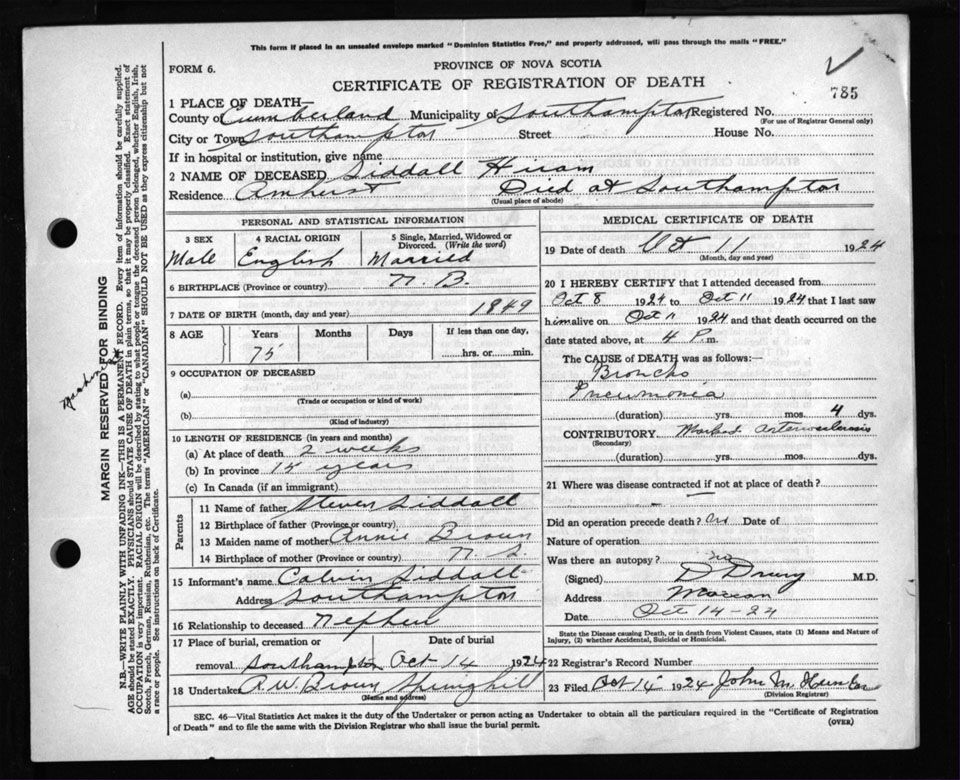 This form if placed in an unsealed envelope marked "Dominion Statistics Free," and properly addressed, will pass through the mails "FREE."
FORM 6.
PROVINCE OF NOVA SCOTIA
CERTIFICATE OF REGISTRATION OF DEATH
785
1 PLACE OF DEATH—
County of Cumberland Municipality of Southampton Registered No.
(For use of Registrar General only)
City or Town Southampton Street House No.
If in hospital or institution, give name
2 NAME OF DECEASED Siddall Hiram
Residence Amherst Died at Southampton
(Usual place of abode)
PERSONAL AND STATISTICAL INFORMATION
3 SEX 4 RACIAL ORIGIN 5 Single, Married, Widowed or Divorced. (Write the word)
Male English Married
6 BIRTHPLACE (Province or country) N. B.
7 DATE OF BIRTH (month, day and year) 1849
8 AGE Years Months Days If less than one day,
75 hrs. or min.
9 OCCUPATION OF DECEASED
(a)
(Trade or occupation or kind of work)
(b)
(Kind of industry)
10 LENGTH OF RESIDENCE (in years and months)
(a) At place of death 2 weeks
(b) In province years
(c) In Canada (if an immigrant)
Parents
11 Name of father Steven Siddall
12 Birthplace of father (Province or country)
13 Maiden name of mother Annie Brown
14 Birthplace of mother (Province or country) N. S.
15 Informant's name Calvin Siddall
Address Southampton
16 Relationship to deceased Nephew
17 Place of burial, cremation or Date of burial
removal Southampton Oct 14 1924
18 Undertaker A. W. Brown Springhill
(Name and address)
MEDICAL CERTIFICATE OF DEATH
19 Date of death Oct 11 1924
(Month, day and year)
20 I HEREBY CERTIFY that I attended deceased from
Oct 8 1924 to Oct 11 1924 that I last saw
him alive on Oct 11 1924 and that death occurred on the
date stated above, at 4 P. m.
The CAUSE OF DEATH was as follows:—
Broncho
Pneumonia
(duration) yrs. mos. 4 dys.
CONTRIBUTORY Marked Arteriosclerosis
(Secondary)
(duration) yrs. mos. dys.
21 Where was disease contracted if not at place of death?
Did an operation precede death? no Date of
Nature of operation
Was there an autopsy? no
(Signed) D Drury M.D.
Address Maccan
Date Oct 14-24
State the Disease causing Death, or in death from Violent Causes, state (1) Means and Nature of
Injury, (2) whether Accidental, Suicidal or Homicidal.
22 Registrar's Record Number
23 Filed Oct 1924 John M. Hunter
(Division Registrar)
SEC. 46—Vital Statistics Act makes it the duty of the Undertaker or person acting as Undertaker to obtain all the particulars required in the "Certificate of Registration
of Death" and to file the same with the Division Registrar who shall issue the burial permit.
(OVER)
MARGIN RESERVED FOR BINDING
N.B.—WRITE PLAINLY WITH UNFADING INK—THIS IS A PERMANENT RECORD. Every item of information should be carefully supplied.
AGE should be stated EXACTLY. PHYSICIANS should STATE CAUSE OF DEATH in plain terms, so that it may be properly classified. Exact statement of
OCCUPATION is very important. RACIAL ORIGIN will be described by stating to what people or tongue the deceased person belonged, whether English, Irish,
Scotch, French, German, Russian, Ruthenian, etc. The terms "AMERICAN" or "CANADIAN" SHOULD NOT BE USED as they express citizenship but not
a race or people. See instructions on back of Certificate.